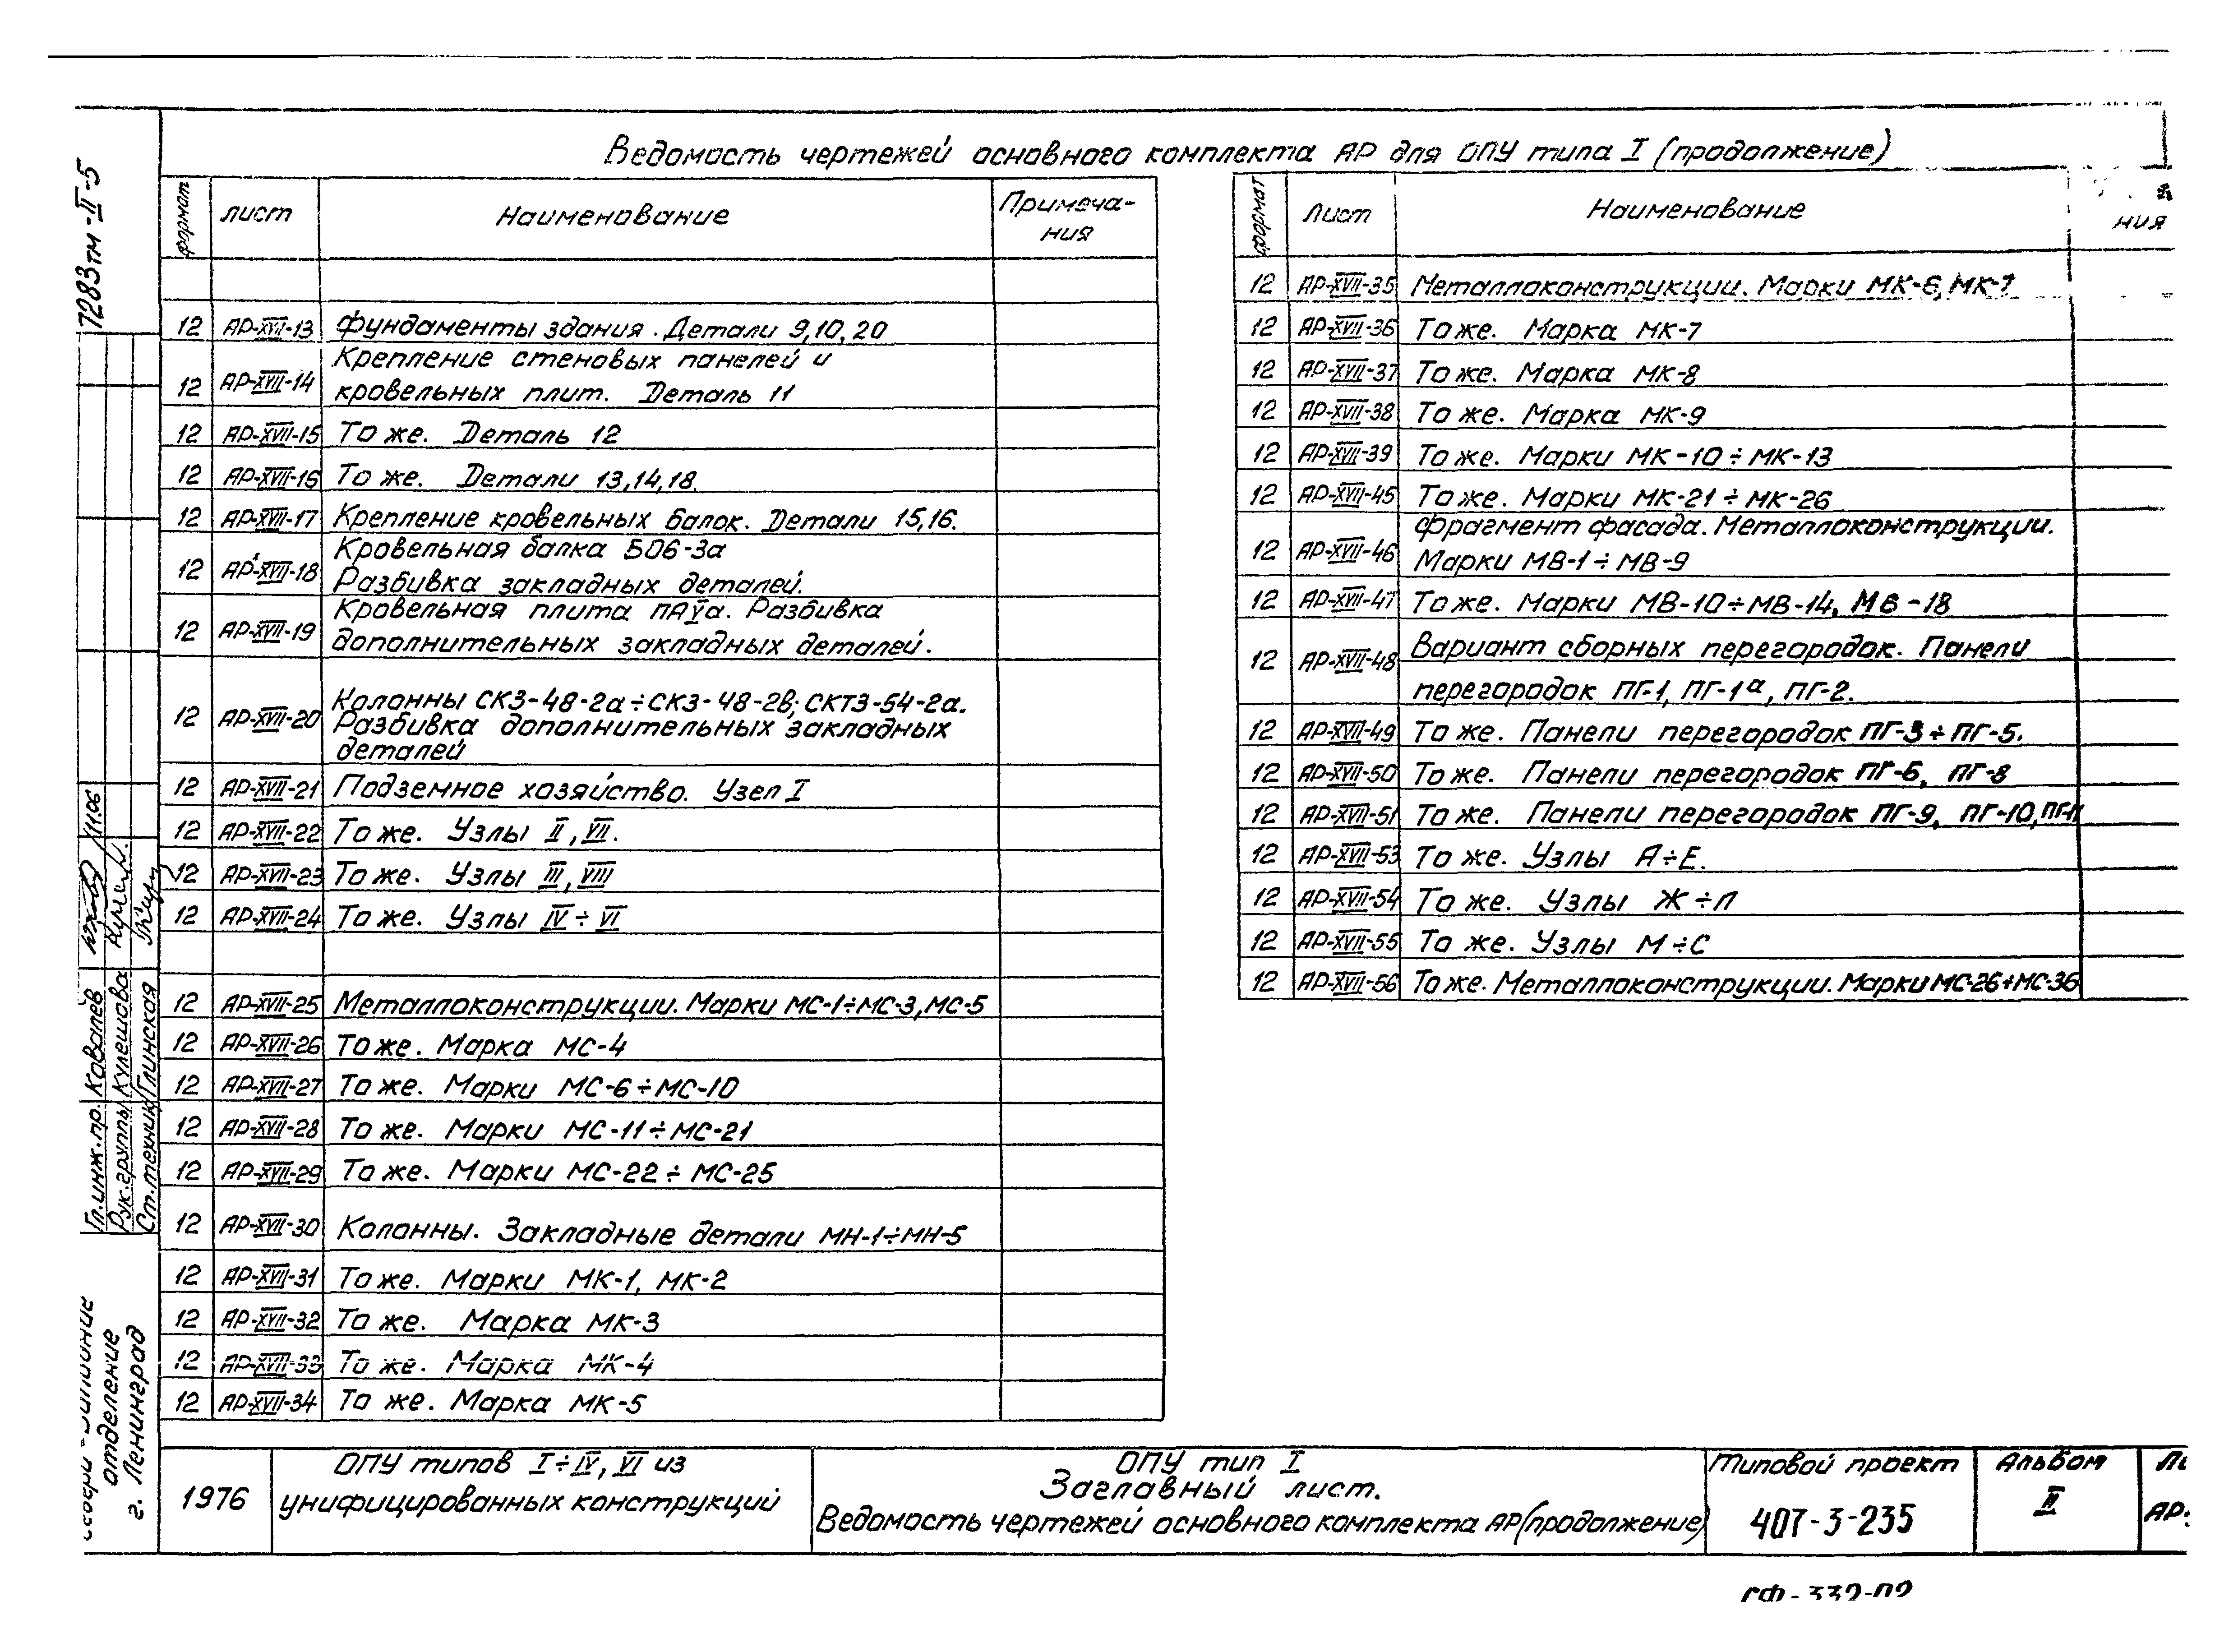 Ведомость чертежей основного комплекта АР для ОПУ типа I (продолжение)
формат лист Наименование Примеча-
ния
12 АР-XVII-13 Фундаменты здания. Детали 9,10,20
12 АР-XVII-14 Крепление стеновых панелей и
кровельных плит. Деталь 11
12 АР-XVII-15 То же. Деталь 12
12 АР-XVII-16 То же. Детали 13,14,18.
12 АР-XVII-17 Крепление кровельных балок. Детали 15,16.
12 АР-XVII-18 Кровельная балка БО6-3а
Разбивка закладных деталей.
12 АР-XVII-19 Кровельная плита ПАVа. Разбивка
дополнительных закладных деталей.
12 АР-XVII-20 Колонны СК3-48-2а÷СК3-48-2в; СКТ3-54-2а.
Разбивка дополнительных закладных
деталей
12 АР-XVII-21 Подземное хозяйство. Узел I
12 АР-XVII-22 То же. Узлы II, VII.
12 АР-XVII-23 То же. Узлы III, VIII
12 АР-XVII-24 То же. Узлы IV ÷ VI
12 АР-XVII-25 Металлоконструкции. Марки МС-1÷МС-3, МС-5
12 АР-XVII-26 То же. Марка МС-4
12 АР-XVII-27 То же. Марки МС-6÷МС-10
12 АР-XVII-28 То же. Марки МС-11÷МС-21
12 АР-XVII-29 То же. Марки МС-22÷МС-25
12 АР-XVII-30 Колонны. Закладные детали МН-1÷МН-5
12 АР-XVII-31 То же. Марки МК-1, МК-2
12 АР-XVII-32 То же. Марка МК-3
12 АР-XVII-33 То же. Марка МК-4
12 АР-XVII-34 То же. Марка МК-5
формат Лист Наименование
ния
12 АР-XVII-35 Металлоконструкции. Марки МК-6, МК-7
12 АР-XVII-36 То же. Марка МК-7
12 АР-XVII-37 То же. Марка МК-8
12 АР-XVII-38 То же. Марка МК-9
12 АР-XVII-39 То же. Марки МК-10÷МК-13
12 АР-XVII-45 То же. Марки МК-21÷МК-26
12 АР-XVII-46 Фрагмент фасада. Металлоконструкции.
Марки МВ-1÷МВ-9
12 АР-XVII-47 То же. Марки МВ-10÷МВ-14, МВ-18
12 АР-XVII-48 Вариант сборных перегородок. Панели
перегородок ПГ-1, ПГ-1а, ПГ-2.
12 АР-XVII-49 То же. Панели перегородок ПГ-3÷ПГ-5.
12 АР-XVII-50 То же. Панели перегородок ПГ-6, ПГ-8
12 АР-XVII-51 То же. Панели перегородок ПГ-9, ПГ-10, ПГ-11
12 АР-XVII-53 То же. Узлы А÷Е.
12 АР-XVII-54 То же. Узлы Ж÷Л
12 АР-XVII-55 То же. Узлы М÷С
12 АР-XVII-56 То же. Металлоконструкции. Марки МС-26÷МС-36
7283тм-II-5
Гл.инж.пр. Ковалев
Рук.группы Кулешова
Ст.техник Глинская
отделение
г. Ленинград
1976
ОПУ типов I÷IV, VI из
унифицированных конструкций
ОПУ тип I
Заглавный лист.
Ведомость чертежей основного комплекта АР (продолжение)
Типовой проект
407-3-235
Альбом
II
АР-